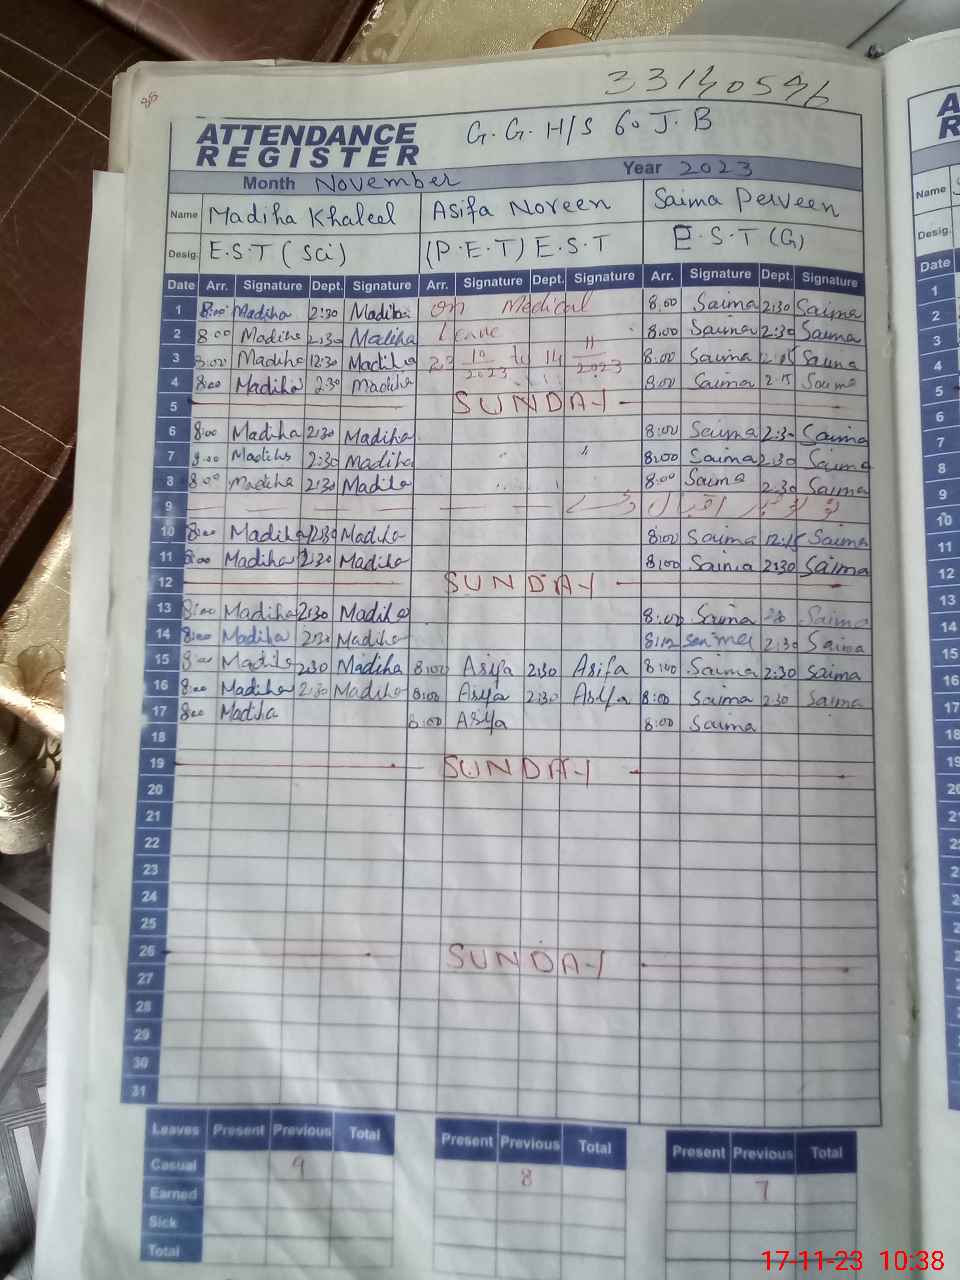 88
33140596
ATTENDANCE REGISTER G.G.H/S 60 J.B
Month November Year 2023
Name Madiha Khaleel Asifa Noreen Saima Perveen
Desig. E.S.T (Sci) (P.E.T) E.S.T E.S.T (G)
Date Arr. Signature Dept. Signature Arr. Signature Dept. Signature Arr. Signature Dept. Signature
1 8:00 Madiha 2:30 Madiha On Medical 8:00 Saima 2:30 Saima
2 8:00 Madiha 2:30 Madiha Leave 8:00 Saima 2:30 Saima
3 8:00 Madiha 12:30 Madiha 23 10/2023 to 14 11/2023 8:00 Saima Saima
4 8:00 Madiha 2:30 Madiha 8:00 Saima 2:15 Saima
5 SUNDAY
6 8:00 Madiha 2:30 Madiha 8:00 Saima 2:30 Saima
7 8:00 Madiha 2:30 Madiha 8:00 Saima 2:30 Saima
8 8:00 Madiha 2:30 Madiha 8:00 Saima 2:30 Saima
9 اقبال
10 8:00 Madiha 12:30 Madiha 8:00 Saima 12:15 Saima
11 8:00 Madiha 2:30 Madiha 8:00 Saima 2:30 Saima
12 SUNDAY
13 8:00 Madiha 2:30 Madiha 8:00 Saima Saima
14 8:00 Madiha 2:30 Madiha Saima 2:30 Saima
15 8:00 Madiha 2:30 Madiha 8:00 Asifa 2:30 Asifa 8:00 Saima 2:30 Saima
16 8:00 Madiha 2:30 Madiha 8:00 Asifa 2:30 Asifa 8:00 Saima 2:30 Saima
17 8:00 Madiha 8:00 Asifa 8:00 Saima
18
19 SUNDAY
20
21
22
23
24
25
26 SUNDAY
27
28
29
30
31
Leaves Present Previous Total Present Previous Total Present Previous Total
Casual 9 8 7
Earned
Sick
Total
A
R
Name
Desig.
Date
1
2
3
4
5
6
7
8
9
10
11
12
13
14
15
16
17
18
19
20
21
17-11-23 10:38